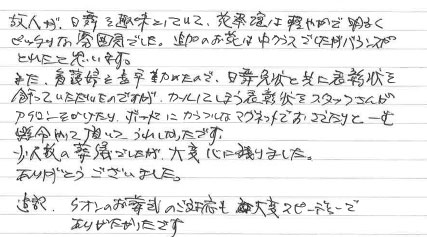 故人が、日舞を趣味としていて、花祭壇は軽やかで明るく
ピッタリな雰囲気でした。追加のお花は中クラスでしたがバランスが
とれたと思います。
また、看護婦を長年勤めたので、日舞免状と共に表彰状を
飾っていただいたのですが、カールしてしまう表彰状をスタッフさんが
アイロンをかけたり、ボードにカラフルなマグネットでおさえたりと一生
懸命やって頂いてうれしかったです。
少人数の葬儀でしたが、大変心に残りました。
ありがとうございました。
追記、イオンのお葬式のご対応も 大変スピーディーで
ありがたかったです